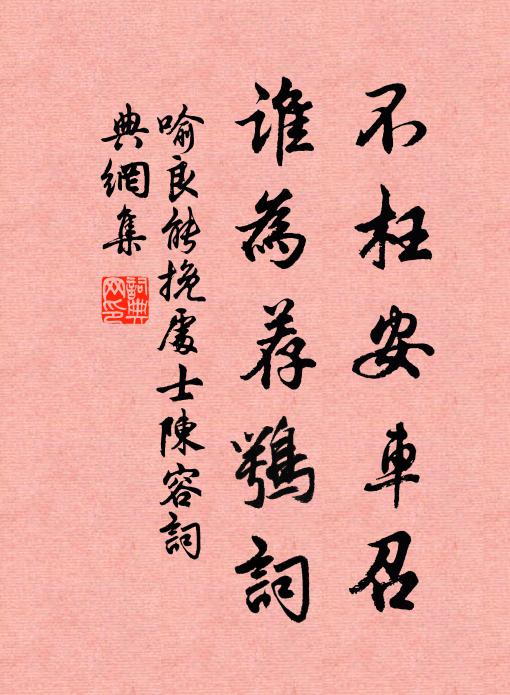 不枉安車召
誰為荐鶚詞
喻良能挽處士陳容詞
典網集
詞典网印